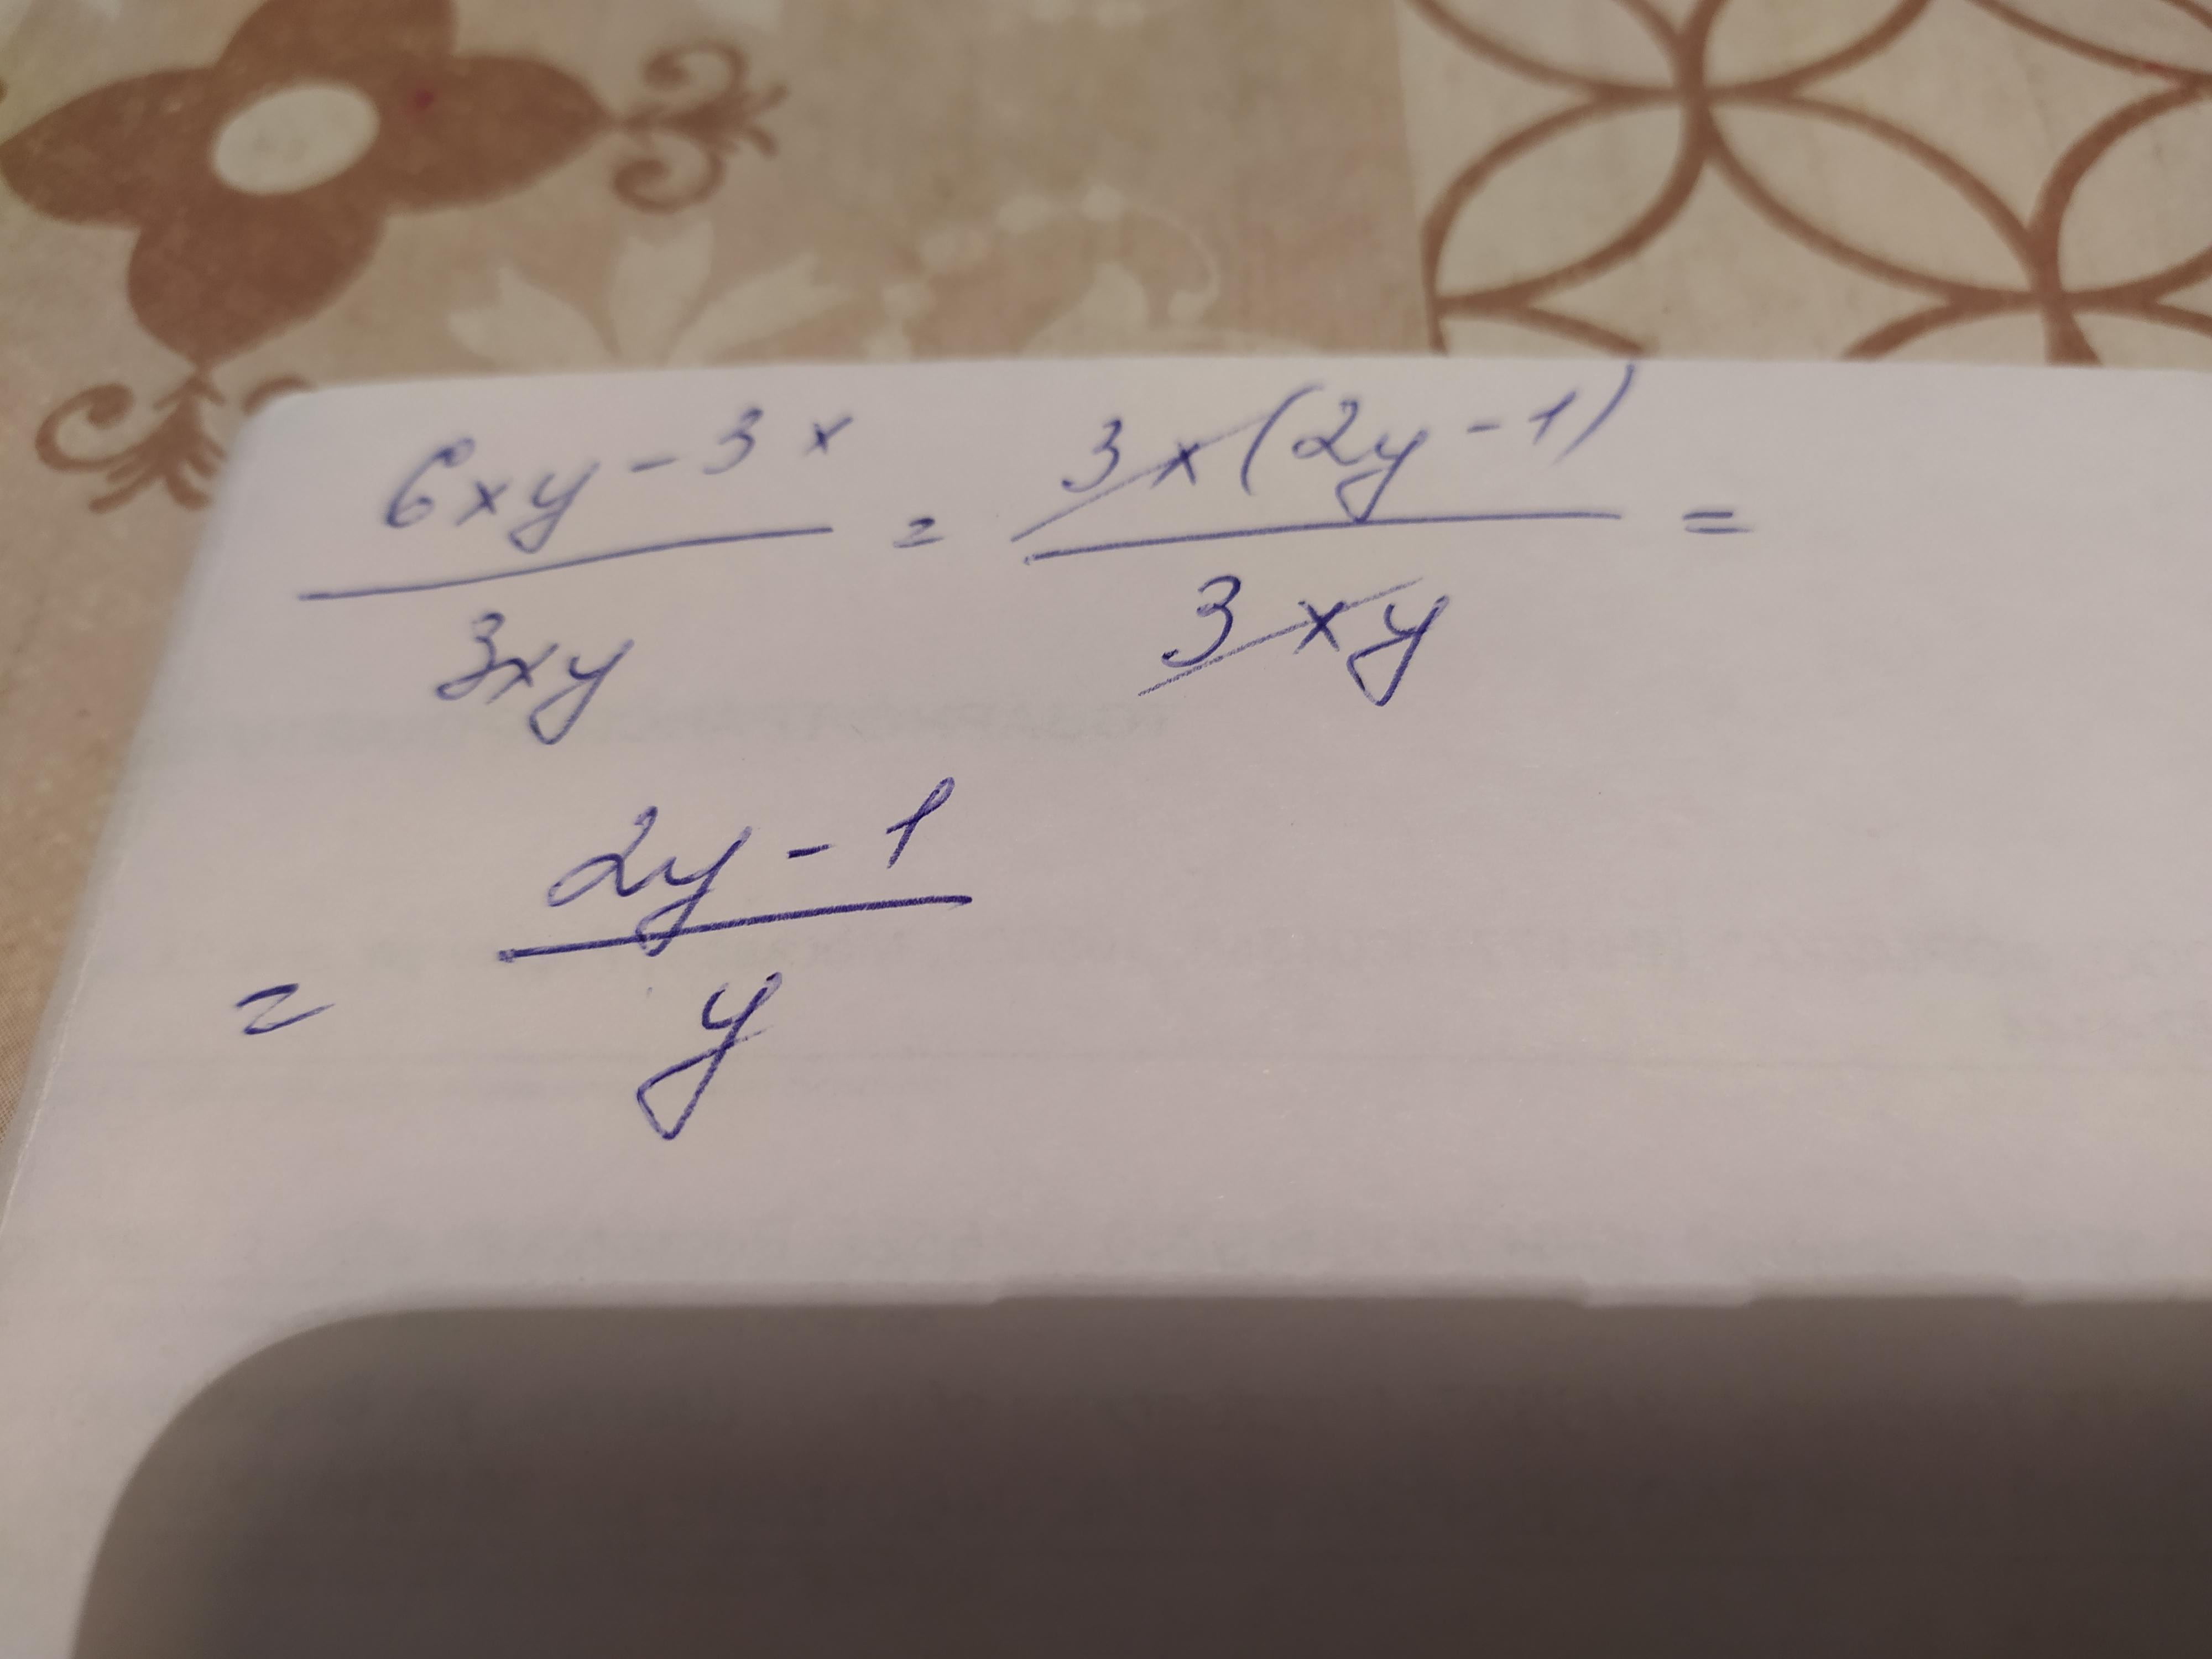 (6xy - 3x)/(3xy) = (3x(2y - 1))/(3xy) =
= (2y - 1)/y